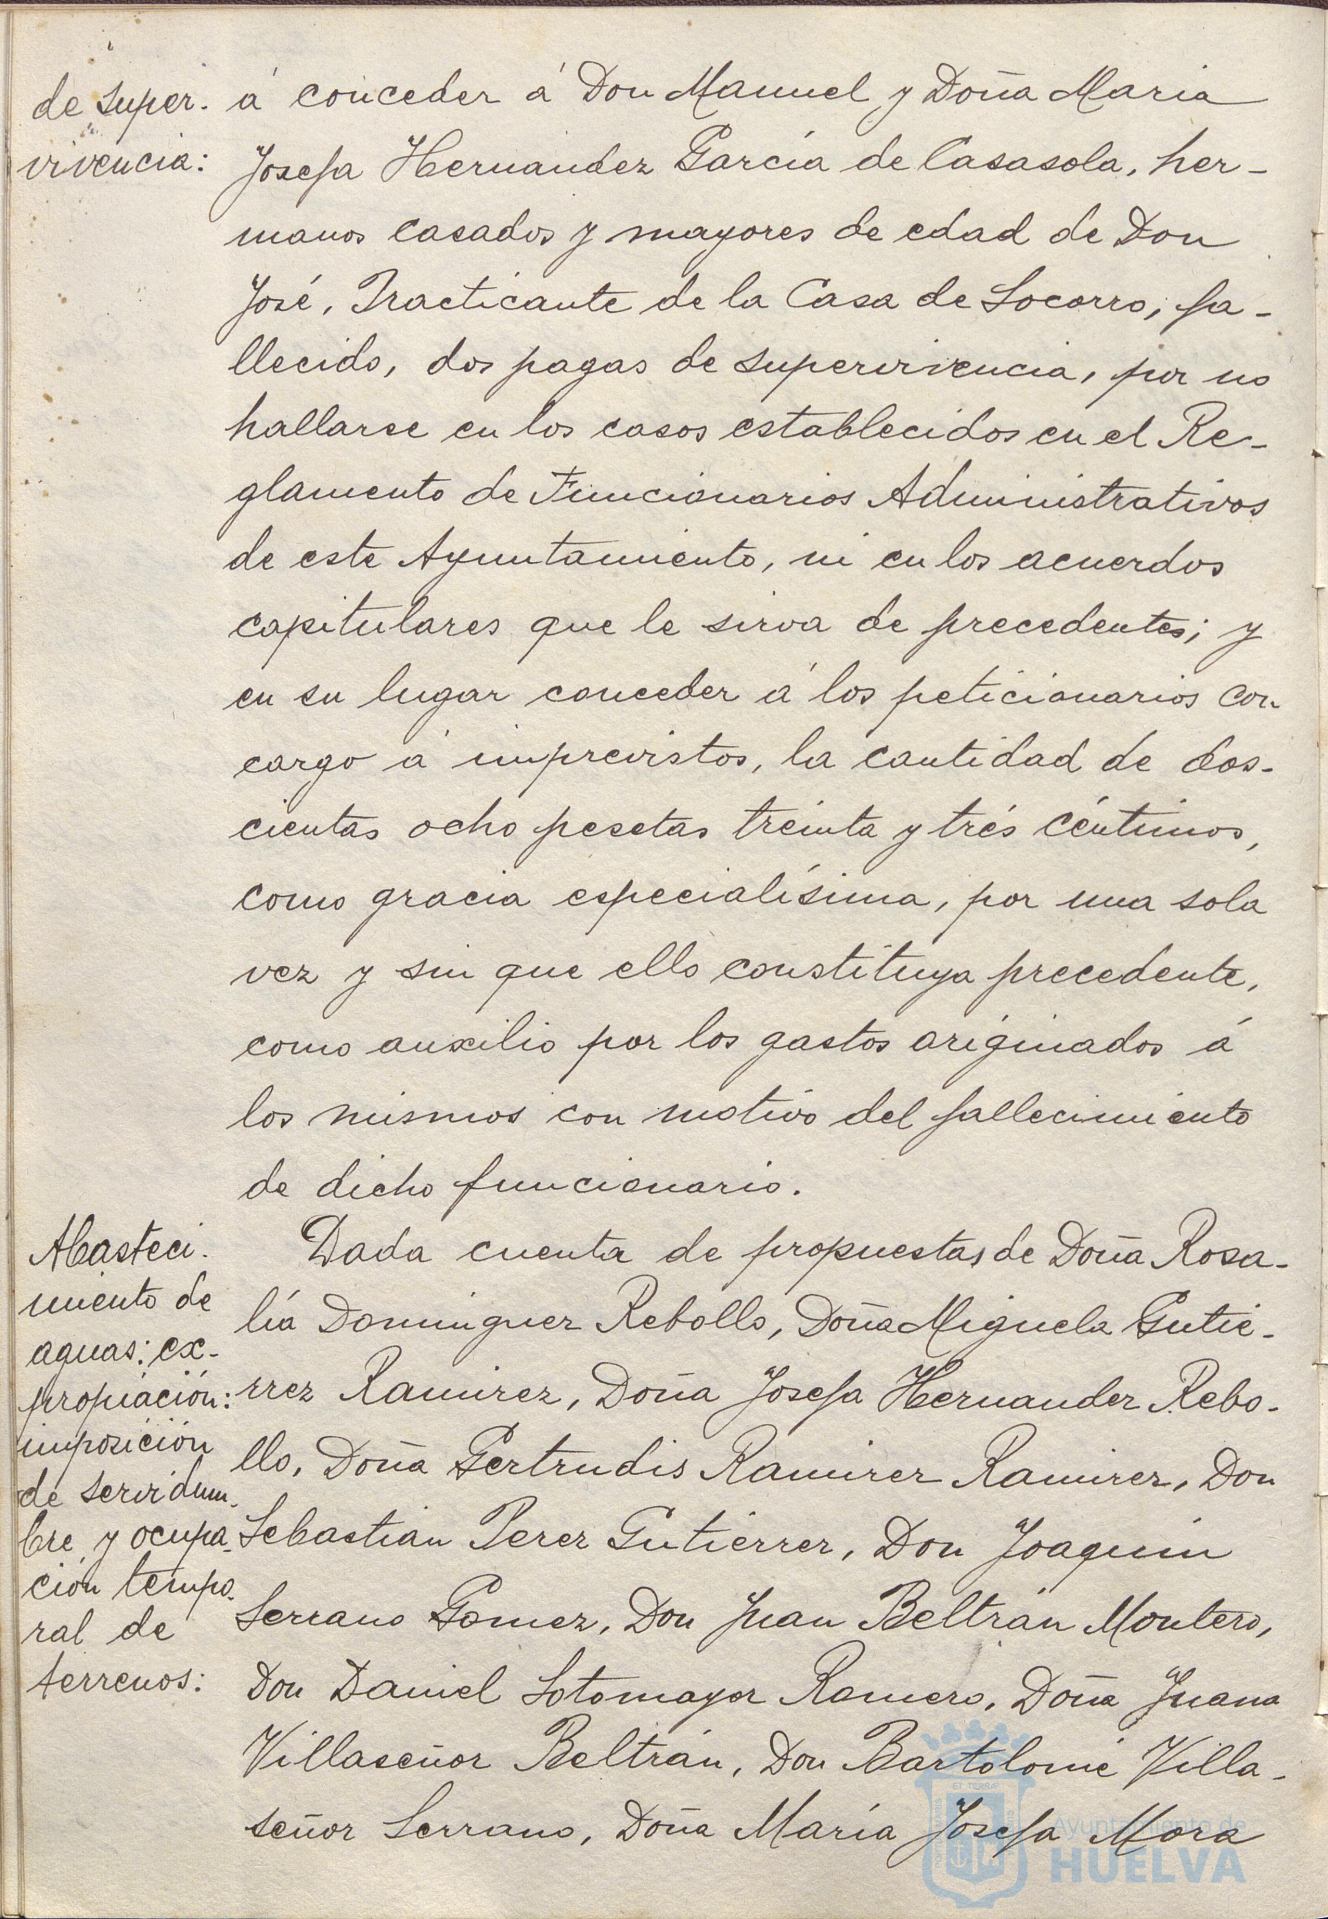 de super-
vivencia:
á conceder á Don Manuel y Doña Maria
Josefa Hernandez García de Casasola, her-
manos casados y mayores de edad de Don
José, Practicante de la Casa de Socorro, fa-
llecido, dos pagas de supervivencia, por no
hallarse en los casos establecidos en el Re-
glamento de Funcionarios Administrativos
de este Ayuntamiento, ni en los acuerdos
capitulares que le sirva de precedentes; y
en su lugar conceder á los peticionarios con
cargo á imprevistos, la cantidad de dos-
cientas ocho pesetas treinta y trés céntimos,
como gracia especialísima, por una sola
vez y sin que ello constituya precedente,
como auxilio por los gastos originados á
los mismos con motivo del fallecimiento
de dicho funcionario.
Abasteci-
miento de
aguas: ex-
propiación:
imposición
de servidum-
bre y ocupa-
ción tempo-
ral de
terrenos:
Dada cuenta de propuestas de Doña Rosa-
lía Dominguez Rebollo, Doña Miguela Gutié-
rrez Ramirez, Doña Josefa Hernandez Rebo-
llo, Doña Gertrudis Ramirez Ramirez, Don
Sebastián Perez Gutiérrez, Don Joaquin
Serrano Gomez, Don Juan Beltrán Montero,
Don Daniel Sotomayor Romero, Doña Juana
Villaseñor Beltrán, Don Bartolomé Villa-
señor Serrano, Doña María Josefa Mora
Ayuntamiento de
HUELVA